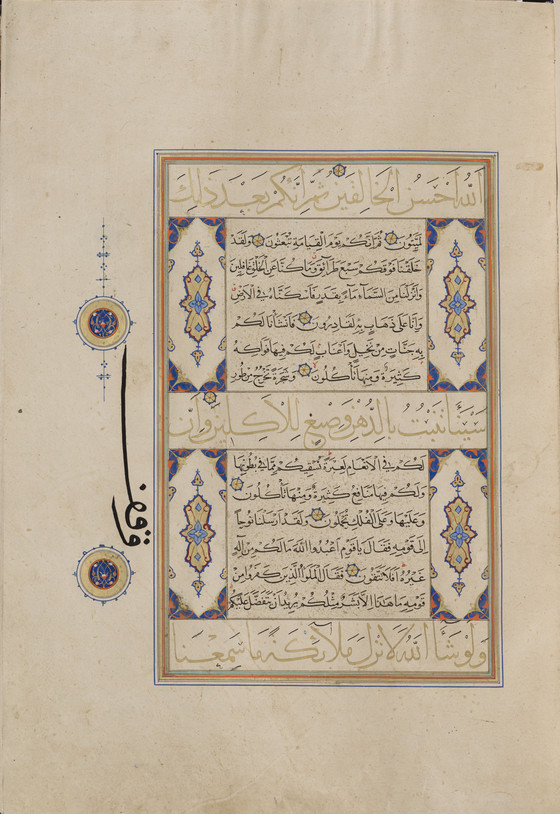 الله أحسن الخالقين ثم إنكم بعد ذلك
لميتون ثم انكم يوم القيامة تبعثون ولقد
خلقنا فوقكم سبع طرائق وما كنا عن الخلق غافلين
وانزلنا من السماء ماء بقدر فاسكناه في الارض
وانا على ذهاب به لقادرون فانشأنا لكم
به جنات من نخيل واعناب لكم فيها فواكه
كثيرة ومنها تأكلون وشجرة تخرج من طور
سيناء تنبت بالدهن وصبغ للآكلين وإن
لكم في الانعام لعبرة نسقيكم مما في بطونها
ولكم فيها منافع كثيرة ومنها تأكلون
وعليها وعلى الفلك تحملون ولقد ارسلنا نوحا
الى قومه فقال يا قوم اعبدوا الله ما لكم من اله
غيره افلا تتقون فقال الملؤا الذين كفروا من
قومه ما هذا الا بشر مثلكم يريد ان يتفضل عليكم
ولو شاء الله لانزل ملائكة ما سمعنا